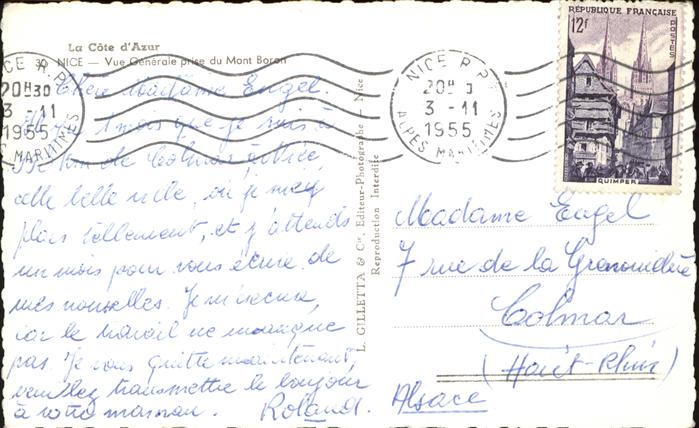 La Côte d'Azur
30 NICE — Vue Générale prise du Mont Boron
Chère Madame Engel.
1 mois que je suis à
de Colmar, à Nice
cette belle ville, où je m'y
plais tellement, et j'attends
un mois pour vous écrire de
mes nouvelles. Je m'excuse,
car le travail ne manque
pas. Je vous quitte maintenant,
veuillez transmettre le bonjour
à votre maman. Roland.
L. GILLETTA & Cie, Editeur-Photographe - Nice
Reproduction Interdite
NICE R.P.
20H30
3-11
1955
ALPES MARITIMES
NICE R.P.
20H
3-11
1955
ALPES MARITIMES
RÉPUBLIQUE FRANÇAISE
12f
POSTES
QUIMPER
Madame Engel
7 rue de la Grenouillère
Colmar
(Haut-Rhin)
Alsace